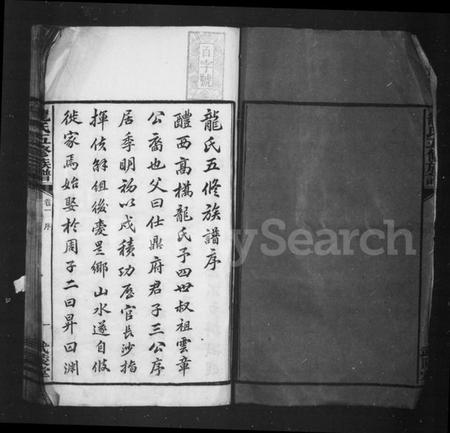 百字號
龍氏五修族譜序
醴西高橋龍氏予四世叔祖雲章
公裔也父曰仕鼎府君子三公序
居季明初以成積功歷官長沙指
揮使解組後愛是鄉山水遂自攸
徙家焉始娶於周子二曰昇曰淵
龍氏五修族譜
卷一 序
一